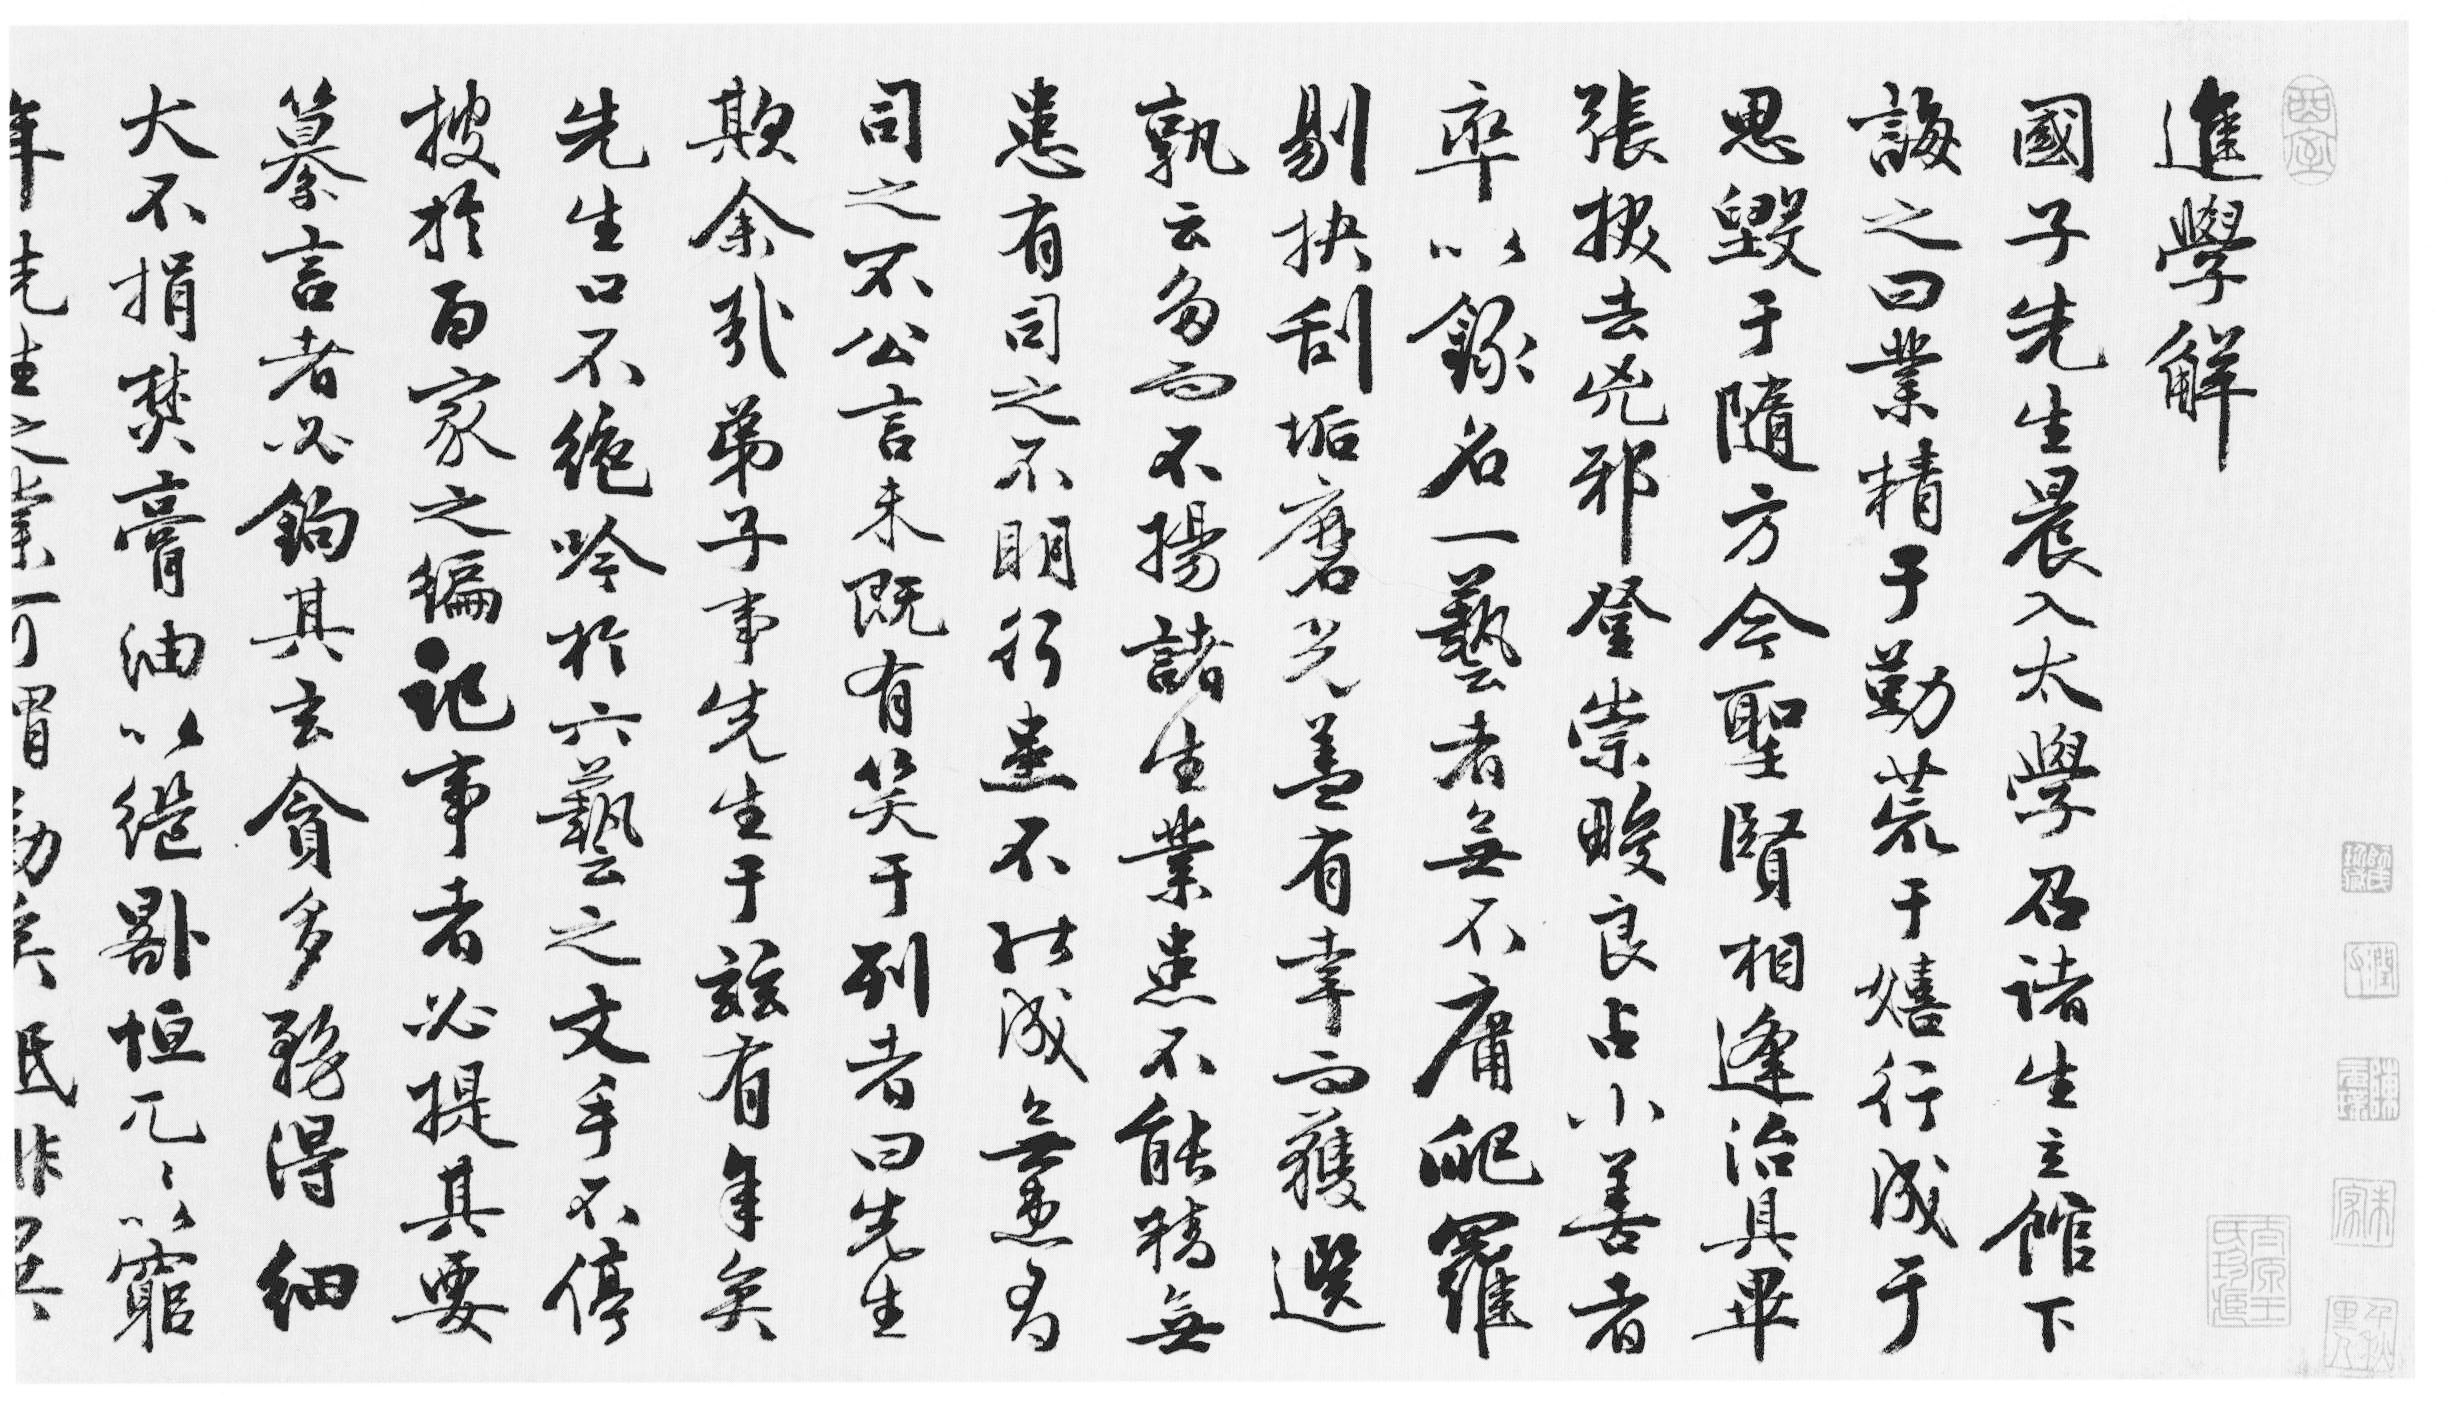 進學解
國子先生晨入太學召諸生立館下
誨之曰業精于勤荒于嬉行成于
思毀于隨方今聖賢相逢治具畢
張拔去兇邪登崇畯良占小善者
率以錄名一藝者無不庸爬羅
剔抉刮垢磨光蓋有幸而獲選
孰云多而不揚諸生業患不能精無
患有司之不明行患不能成無患有
司之不公言未既有笑于列者曰先生
欺余哉弟子事先生于茲有年矣
先生口不絕吟於六藝之文手不停
披於百家之編記事者必提其要
纂言者必鉤其玄貪多務得細
大不捐焚膏油以繼晷恒兀〻以窮
年先生之業可謂勤矣